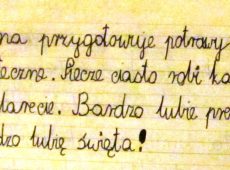 na przygotowuje potrawy
teczne. Piecze ciasto robi ka
alarecie. Bardzo lubie pre
dzo lubię święta!